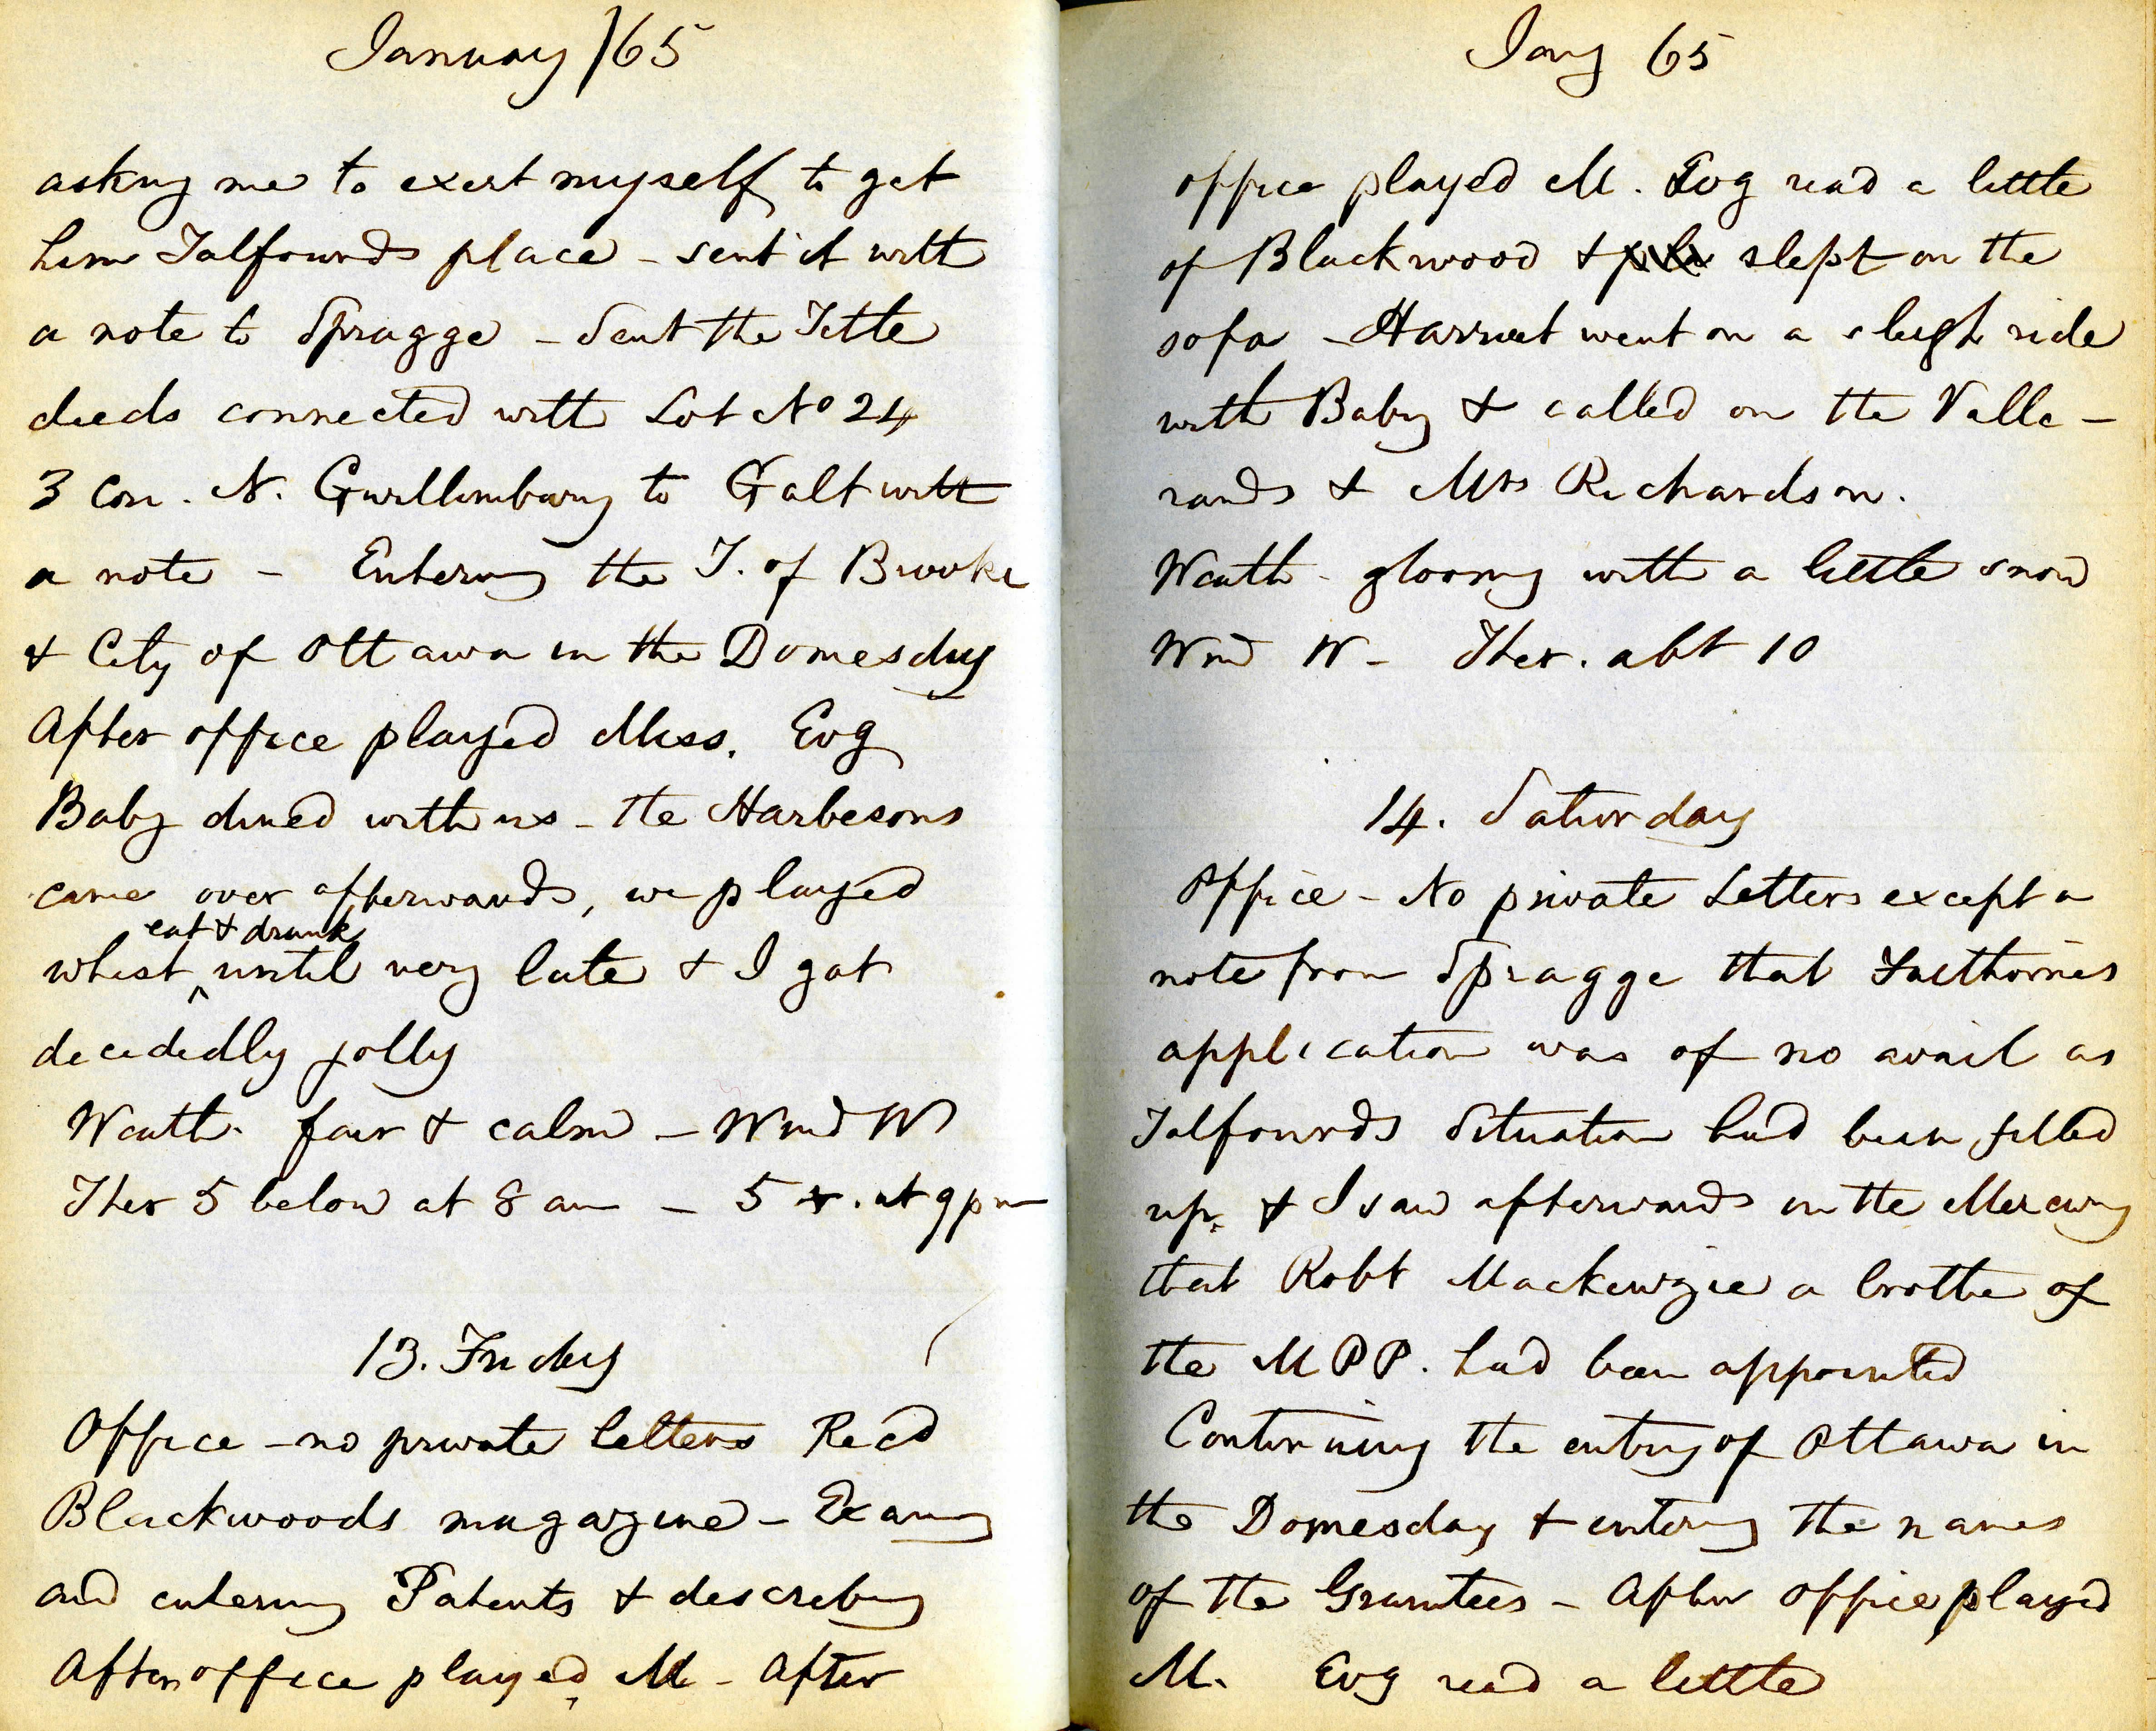 January /65
asking me to exert myself to get
him Talfourds place - sent it with
a note to Spragge - Sent the Title
deeds connected with Lot No 24
3 Con. N. Gwillimbury to Galt with
a note - Entering the T. of Brooke
& City of Ottawa in the Domesday
After office played Miss. Evg
Baby dined with us - the Harbesons
came over afterwards, we played
eat & drank
whist ^ until very late & I got
decidedly jolly
Weath. fair & calm - Wind W
Ther 5 below at 8 am - 5 . at 9 pm
13. Friday
Office - no private letters Recd
Blackwoods magazine - Examg
and entering Patents & describing
After office played M - After
Jany 65
office played M. Evg read a little
of Blackwood & slept on the
sofa - Harriet went on a sleigh ride
with Baby & called on the Valle-
rands & Mrs Richardson.
Weath - gloomy with a little snow
Wind W - Ther. abt 10
14. Saturday
Office - No private Letters except a
note from Spragge that Faithornes
application was of no avail as
Talfourds Situation had been filled
up. & I saw afterwards in the Mercury
that Robt Mackenzie a brother of
the MPP. had been appointed
Continuing the entry of Ottawa in
the Domesday & entering the names
of the Grantees - After office played
M. Evg read a little